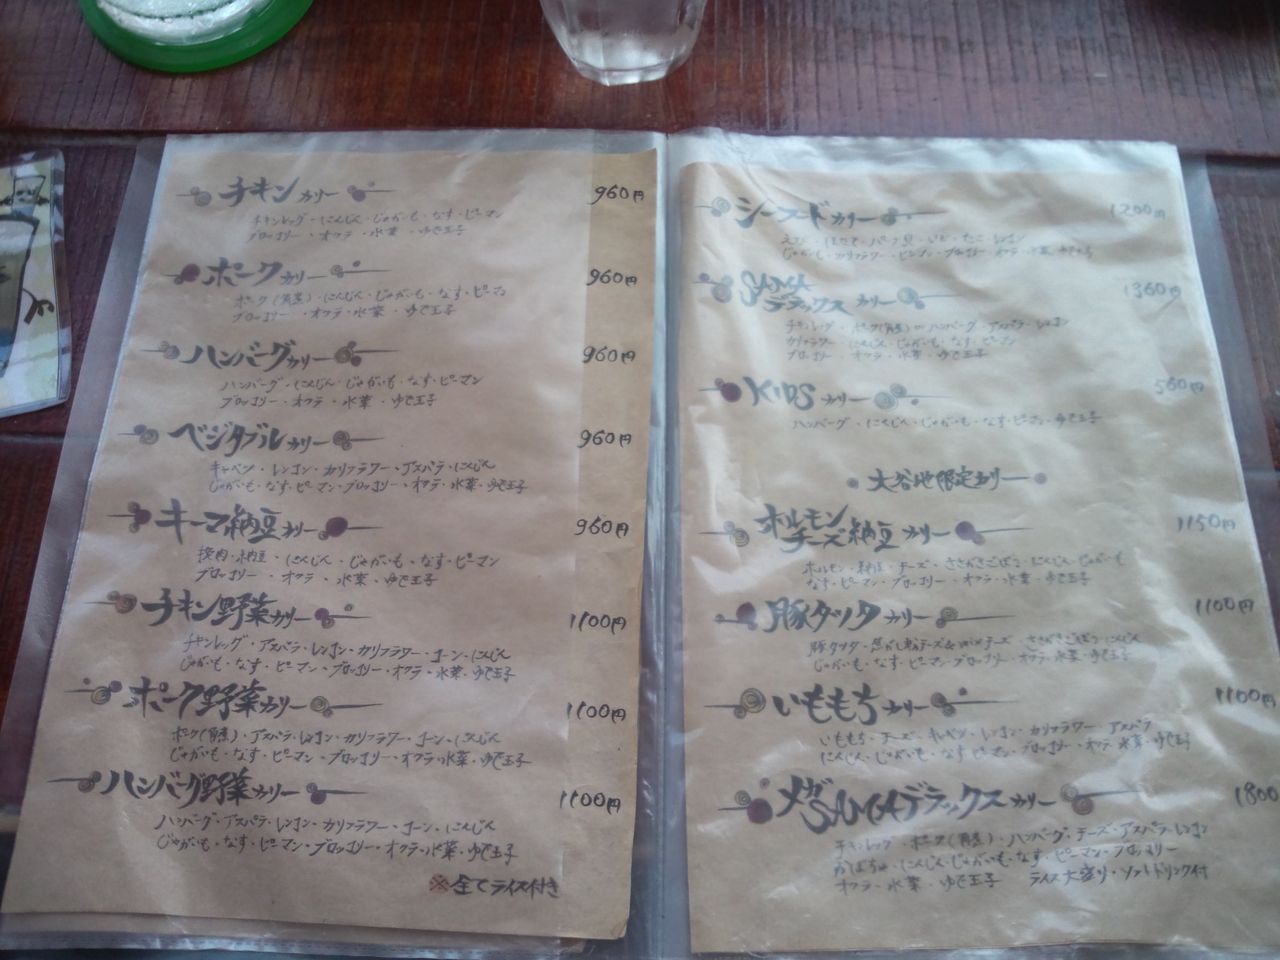 チキンカリー 960円
チキンレッグ・にんじん・じゃがいも・なす・ピーマン
ブロッコリー・オクラ・水菜・ゆで玉子
ポークカリー 960円
ポーク(角煮)・にんじん・じゃがいも・なす・ピーマン
ブロッコリー・オクラ・水菜・ゆで玉子
ハンバーグカリー 960円
ハンバーグ・にんじん・じゃがいも・なす・ピーマン
ブロッコリー・オクラ・水菜・ゆで玉子
ベジタブルカリー 960円
キャベツ・レンコン・カリフラワー・アスパラ・にんじん
じゃがいも・なす・ピーマン・ブロッコリー・オクラ・水菜・ゆで玉子
キーマ納豆カリー 960円
挽肉・納豆・にんじん・じゃがいも・なす・ピーマン
ブロッコリー・オクラ・水菜・ゆで玉子
チキン野菜カリー 1100円
チキンレッグ・アスパラ・レンコン・カリフラワー・コーン・にんじん
じゃがいも・なす・ピーマン・ブロッコリー・オクラ・水菜・ゆで玉子
ポーク野菜カリー 1100円
ポーク(角煮)・アスパラ・レンコン・カリフラワー・コーン・にんじん
じゃがいも・なす・ピーマン・ブロッコリー・オクラ・水菜・ゆで玉子
ハンバーグ野菜カリー 1100円
ハンバーグ・アスパラ・レンコン・カリフラワー・コーン・にんじん
じゃがいも・なす・ピーマン・ブロッコリー・オクラ・水菜・ゆで玉子
※全てライス付き
シーフードカリー 1200円
えび・ほたて・パーナ貝・いか・たこ・レンコン
じゃがいも・カリフラワー・ピーマン・ブロッコリー・オクラ・水菜・ゆで玉子
SAMA
デラックスカリー 1360円
チキンレッグ・ポーク(角煮)orハンバーグ・アスパラ・レンコン
カリフラワー・にんじん・じゃがいも・なす・ピーマン
ブロッコリー・オクラ・水菜・ゆで玉子
KIDSカリー 560円
ハンバーグ・にんじん・じゃがいも・なす・ピーマン・ゆで玉子
大谷地限定カリー
ホルモン
チーズ納豆カリー 1150円
ホルモン・納豆・チーズ・ささがきごぼう・にんじん・じゃがいも
なす・ピーマン・ブロッコリー・オクラ・水菜・ゆで玉子
豚タツタカリー 1100円
豚タツタ・焦がし チーズ& チーズ・ささがきごぼう・にんじん
じゃがいも・なす・ピーマン・ブロッコリー・オクラ・水菜・ゆで玉子
いももちカリー 1100円
いももち・チーズ・キャベツ・レンコン・カリフラワー・アスパラ
にんじん・じゃがいも・なす・ピーマン・ブロッコリー・オクラ・水菜・ゆで玉子
メガSAMAデラックスカリー 1800
チキンレッグ・ポーク(角煮)・ハンバーグ・チーズ・アスパラ・レンコン
かぼちゃ・にんじん・じゃがいも・なす・ピーマン・ブロッコリー
オクラ・水菜・ゆで玉子 ライス大盛り・ソフトドリンク付